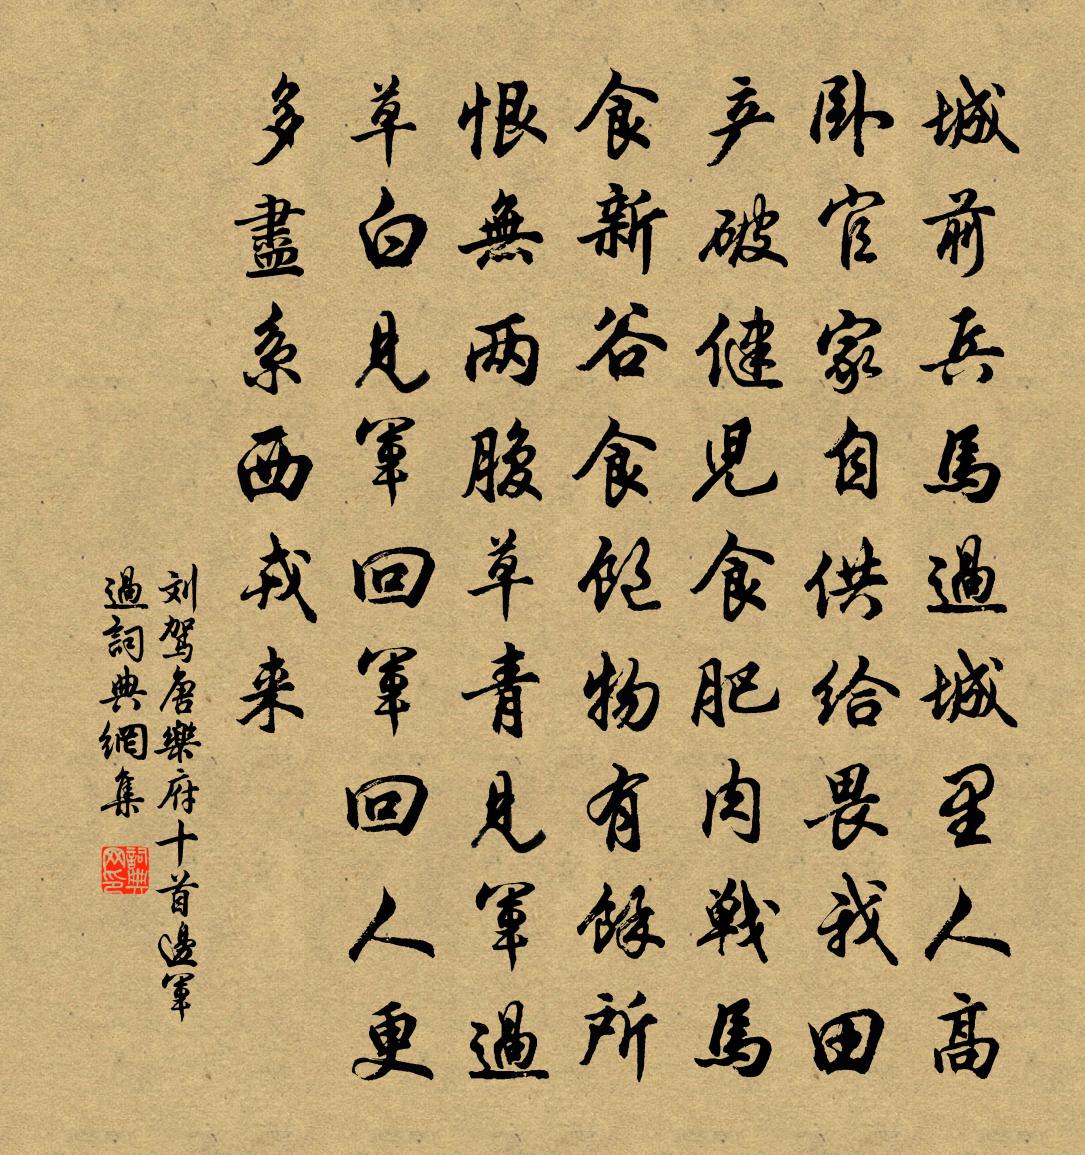 城前兵馬過城里人高
卧官家自供給畏我田
产破健児食肥肉戦馬
食新谷食飽物有餘所
恨無两腹草青見軍過
草白見軍回軍回人更
多盡系西戎来
刘驾唐樂府十首邊軍
過詞典網集
詞典
网印